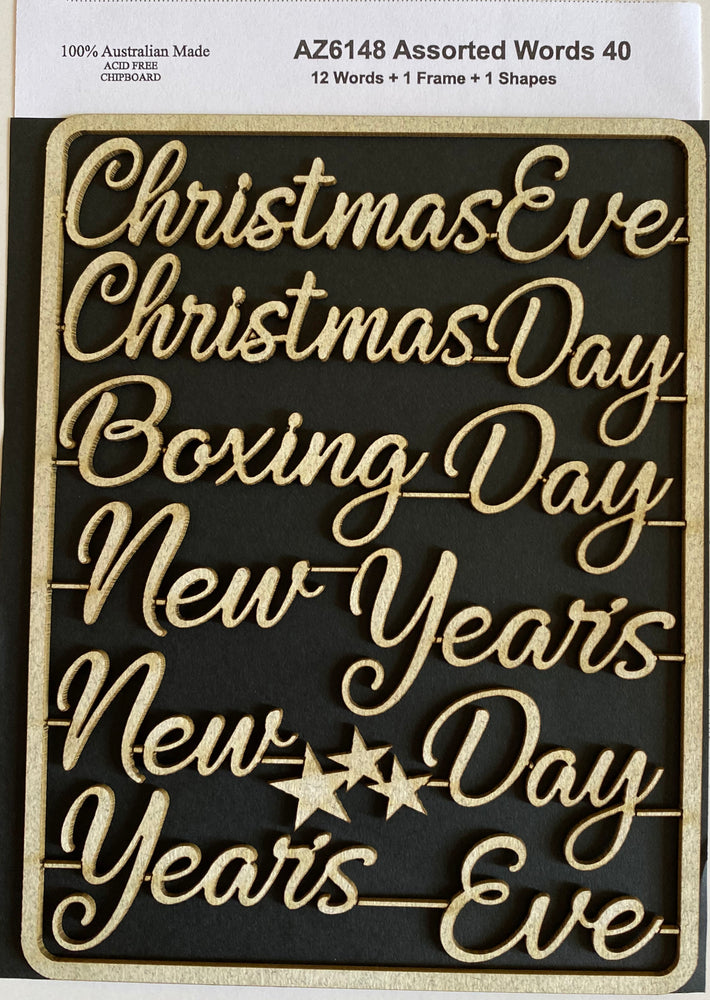 100% Australian Made
ACID FREE
CHIPBOARD
AZ6148 Assorted Words 40
12 Words + 1 Frame + 1 Shapes
Christmas Eve
Christmas Day
Boxing Day
New Year's
New Day
Year's Eve